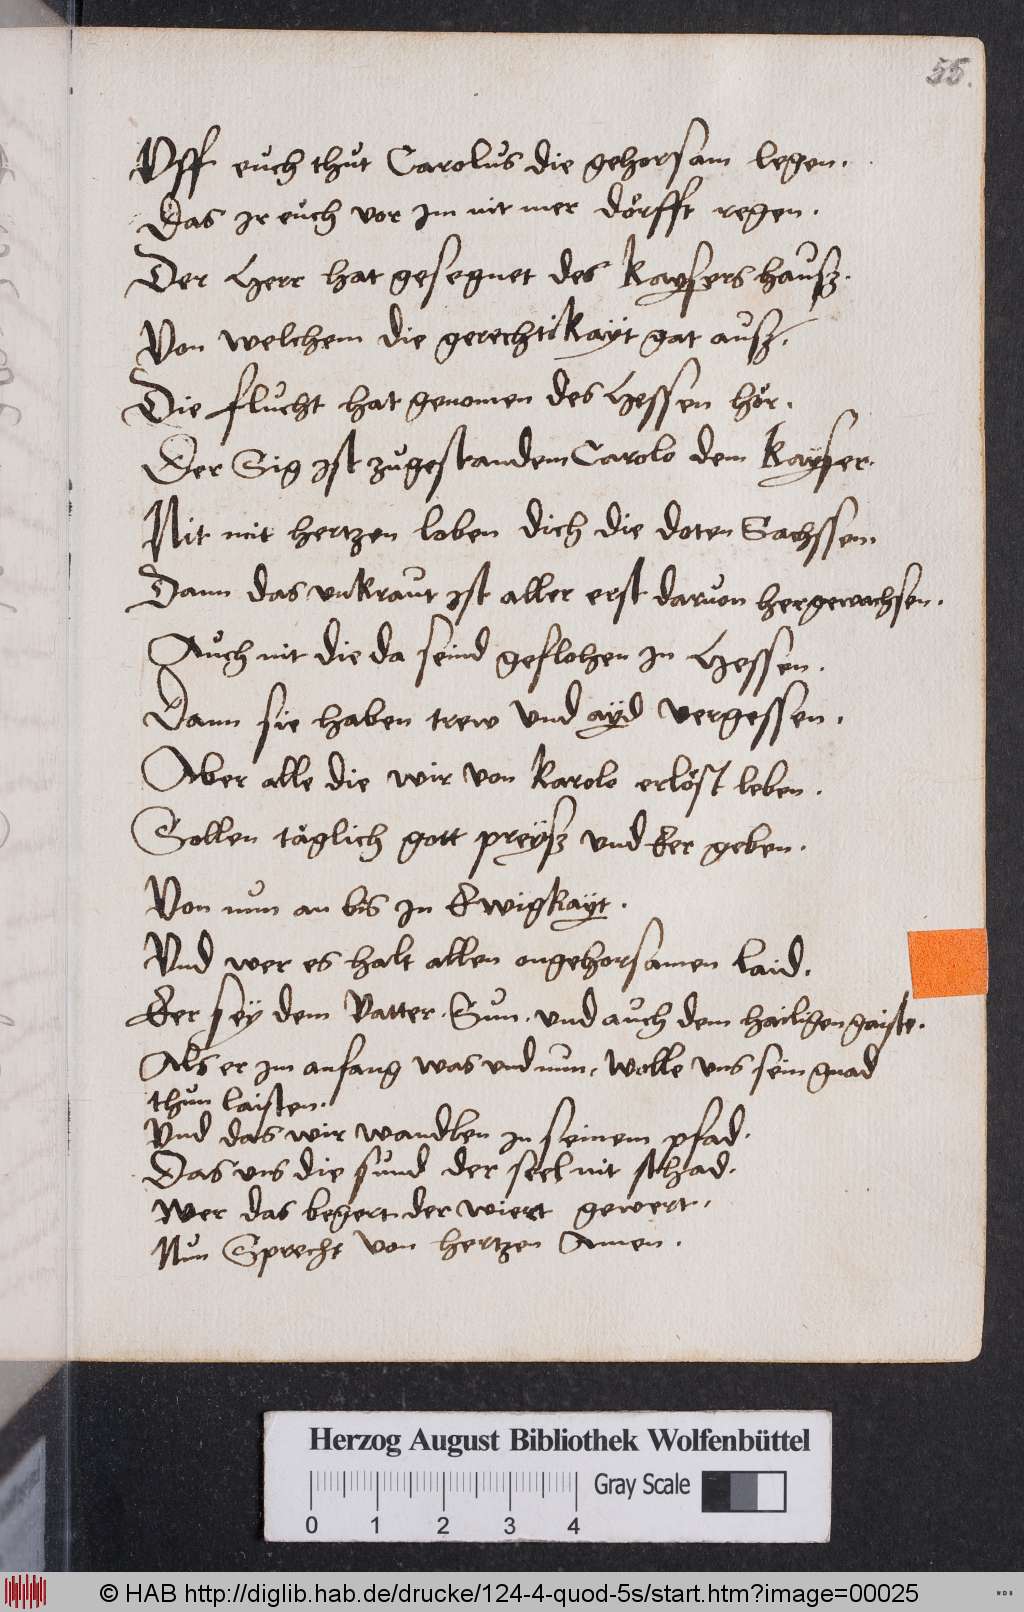 55.
Vff euch thut Carolus die gehorsam legen.
Das ir euch vor im nit mer dörfft regen.
Der Herr hat gesegnet des kaysers hausz.
Von welchem die gerechtikayt gat ausz.
Die flucht hat genomen des Hessen hör.
Der Sig ist zugestandem Carolo dem kayser.
Nit mit hertzen loben dich die doten Sachssen.
Dann das vnkraut ist aller erst daruon hergewachsen.
Auch nit die da seind geflohen in Hessen.
Dann sie haben trew vnd ayd vergessen.
Aber alle die wir von karolo erlöst leben.
Sollen täglich gott preysz vnd Eer geben.
Von nun an bis in Ewigkayt.
Vnd wer es halt allen ongehorsamen laid.
Eer sey dem Vatter. Sun. vnd auch dem hailigen gaiste.
Als er im anfang was vnd nun, wolle vns sein gnad
thun laisten.
Vnd das wir wandlen in seinem pfad.
Das vns die sund der seel nit schad.
Wer das begert der wiert gewert.
Nun Sprecht von hertzen Amen.
Herzog August Bibliothek Wolfenbüttel
Gray Scale
0 1 2 3 4
© HAB http://diglib.hab.de/drucke/124-4-quod-5s/start.htm?image=00025